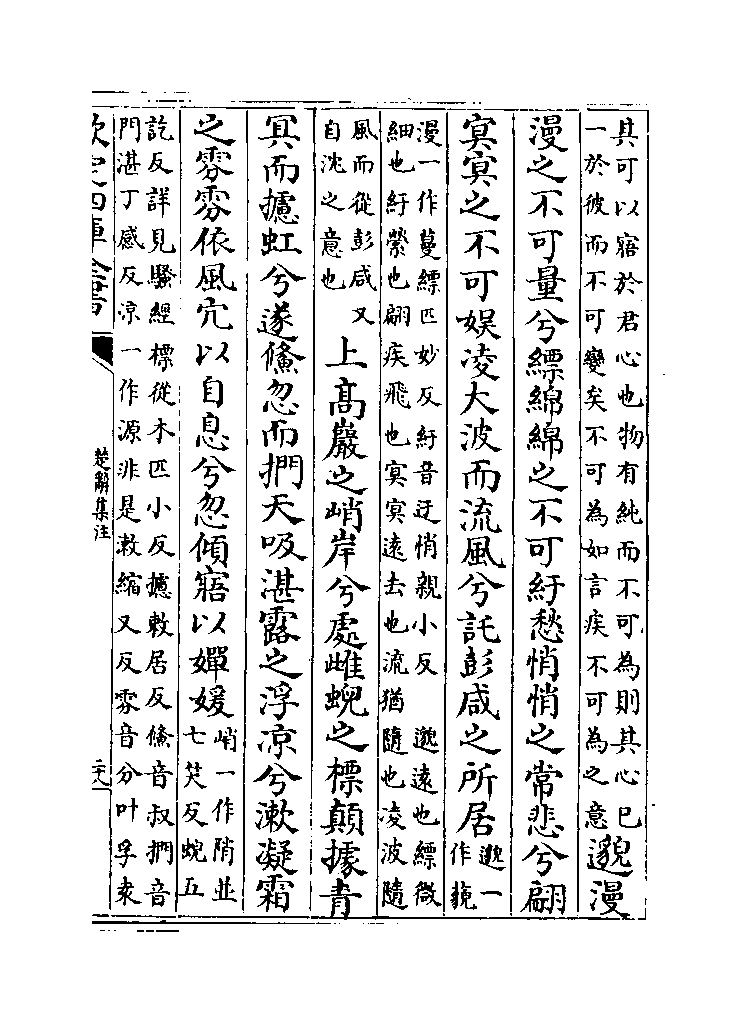 其可以寤於君心也物有純而不可為則其心已
一於彼而不可變矣不可為如言疾不可為之意
邈漫
漫之不可量兮縹綿綿之不可紆愁悄悄之常悲兮翩
冥冥之不可娛凌大波而流風兮託彭咸之所居
邈一
作藐
漫一作蔓縹匹妙反紆音迂悄親小反 邈遠也縹微
細也紆縈也翩疾飛也冥冥遠去也流猶隨也凌波隨
風而從彭咸又
自沈之意也
上髙巖之峭岸兮處雌蜺之標顛據青
冥而攄虹兮遂儵忽而捫天吸湛露之浮凉兮漱凝霜
之雰雰依風穴以自息兮忽傾寤以嬋媛
峭一作陗並
七笑反蜺五
訖反詳見騷經標從木匹小反攄敕居反儵音叔捫音
門湛丁感反凉一作源非是漱縮又反雰音分叶孚袁
欽定四庫全書
楚辭集注